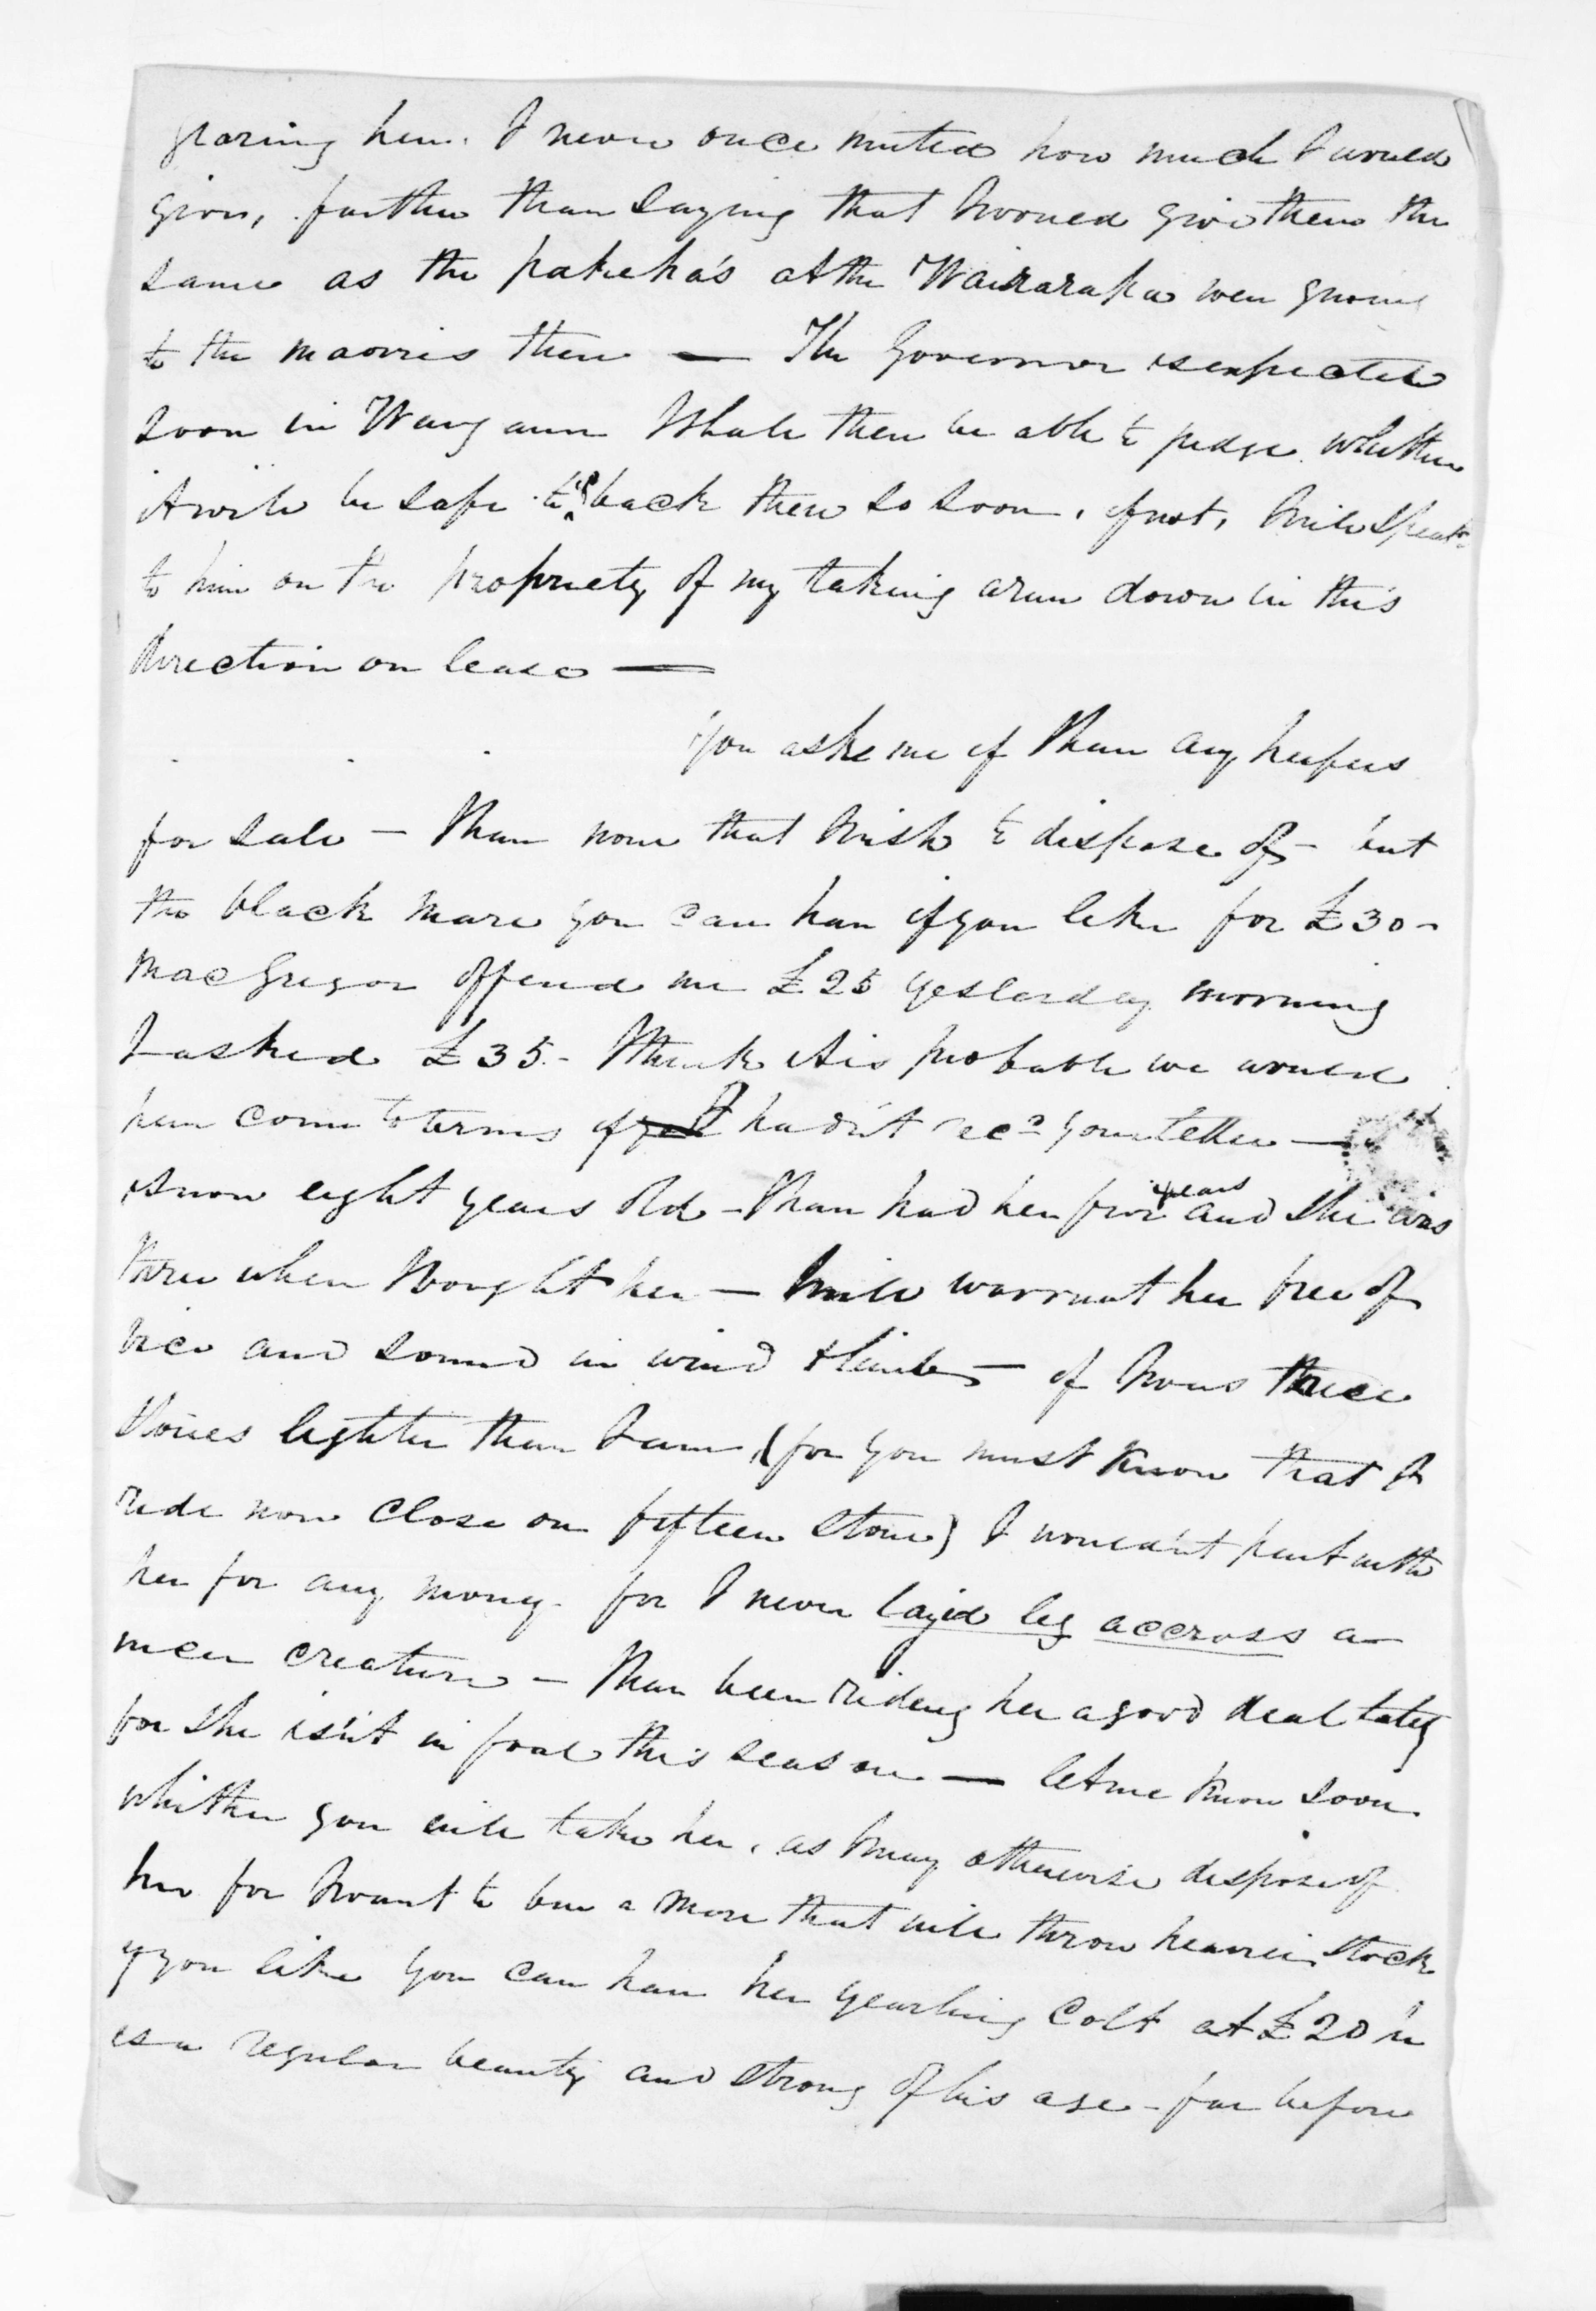 grazing here. I never once hinted how much I would
give, further than saying that I would give them the
same as the pakeha's at the Wairarapa were giving
to the maoris there — The Governor is expected
soon in Wanganui I shall then be able to judge whether
it will be safe to go back there so soon, if not, I will speak
to him on the propriety of my taking a run down in this
direction on lease —
You ask me if I have any heifers
for sale — I have none that I wish to dispose of — but
the black mare you can have if you like for £30 -
MacGregor offered me £25 yesterday morning
I asked £35 - I think it is probable we would
have come to terms if I hadn't recd your letter —
is now eight years old - I have had her five years and she was
three when I bought her — I will warrant her free of
vice and sound in wind & limb — if I was three
stones lighter than I am, (for you must know that I
ride now close on fifteen stone) I wouldn't part with
her for any money - for I never layed leg accross a
nicer creature — I have been riding her a good deal lately
for she isn't in foal this season — let me know soon
whither you will take her, as I may otherwise dispose of
her for I want to buy a mare that will throw heavier stock
if you like you can have her yearling colt at £20 he
is a regular beauty and strong of his age - far before